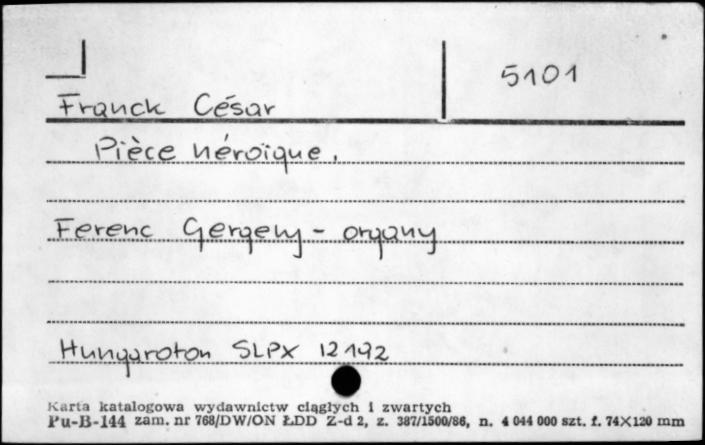 5101
Franck César
Pièce héroïque.
Ferenc Gergely - organy
Hungaroton SLPX 12192
Karta katalogowa wydawnictw ciągłych i zwartych
Pu-B-144 zam. nr 768/DW/ON ŁDD Z-d 2, z. 387/1500/86, n. 4 044 000 szt. f. 74X120 mm